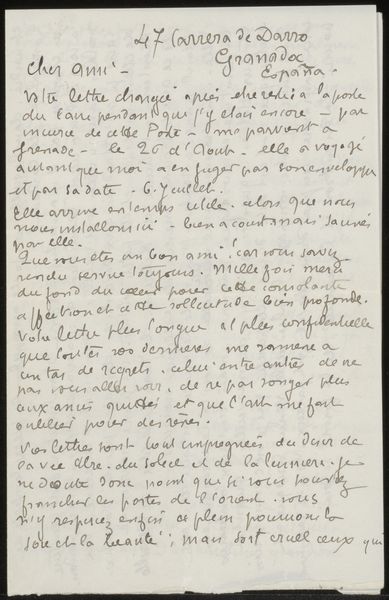 47 Carrera de Darro
Granada
España -
Cher ami -
Votre lettre chargée après être restée à la poste
du Caire pendant que j'y étais encore - par
incurie de cette Poste - me parvient à
Grenade - le 26 d'Aout - elle a voyagé
autant que moi à en juger par son enveloppe
et par sa date - 6 Juillet.
Elle arrive en temps utile. alors que nous
nous installons ici - bien à court mais sauvés
par elle.
Que vous êtes un bon ami! car vous savez
rendre service toujours. Mille fois merci
du fond du cœur pour cette consolante
affection et cette sollicitude bien profonde.
Votre lettre plus longue et plus confidentielle
que toutes vos dernières me ramène à
un tas de regrets. celui entre autres de ne
pas vous aller voir, de ne pas songer plus
aux amis quittés et que l'art me fait
oublier pour des rêves.
Vos lettres sont tout imprégnées du désir de
la vie libre. du soleil et de la lumière. Je
ne doute donc point que si vous pouviez
franchir les portes de l'orient. vous
n'y respiriez enfin à plein poumons la
joie et la beauté; mais sort cruel ceux qui